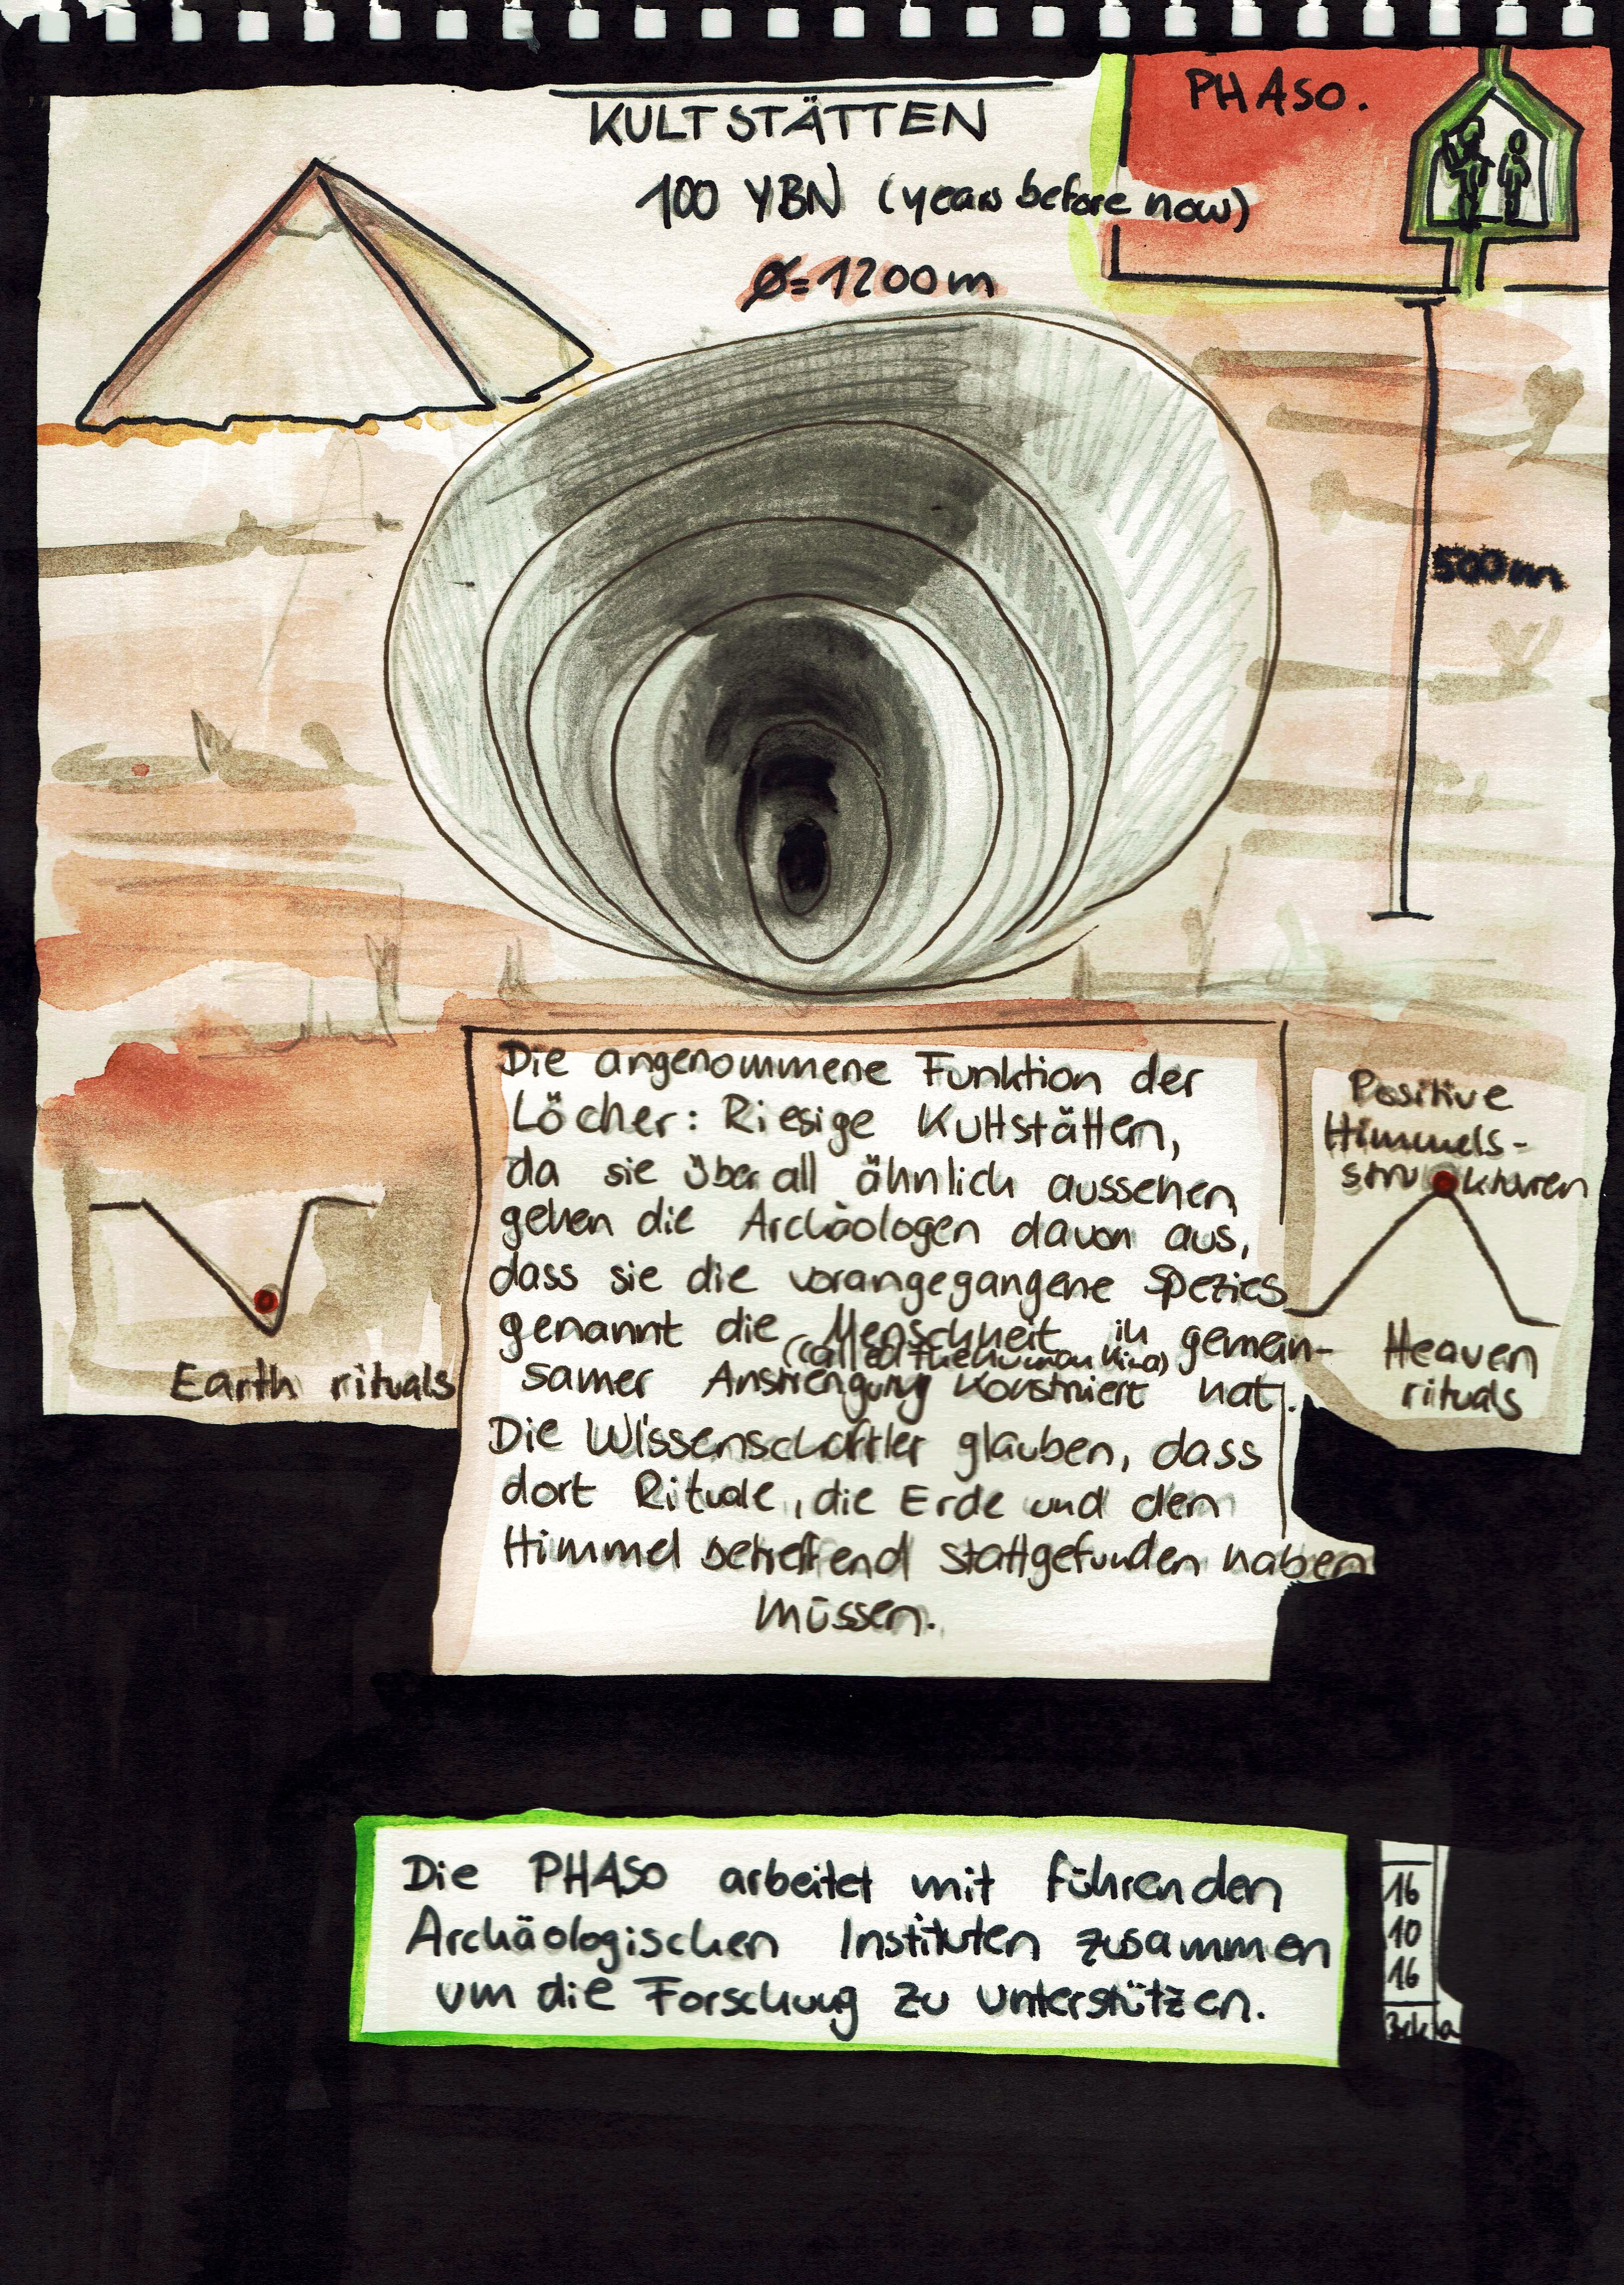 KULTSTÄTTEN
PHASO.
100 YBN (years before now)
Ø=1200m
500m
Die angenommene Funktion der
Löcher: Riesige Kultstätten,
da sie überall ähnlich aussehen,
gehen die Archäologen davon aus,
dass sie die vorangegangene Spezies
genannt die Menschheit in gemein-
(called the human kind)
samer Anstrengung konstruiert hat.
Die Wissenschaftler glauben, dass
dort Rituale, die Erde und den
Himmel betreffend stattgefunden haben
müssen.
Earth rituals
Positive
Himmels-
strukturen
Heaven
rituals
Die PHASO arbeitet mit führenden
Archäologischen Instituten zusammen
um die Forschung zu unterstützen.
16
10
16